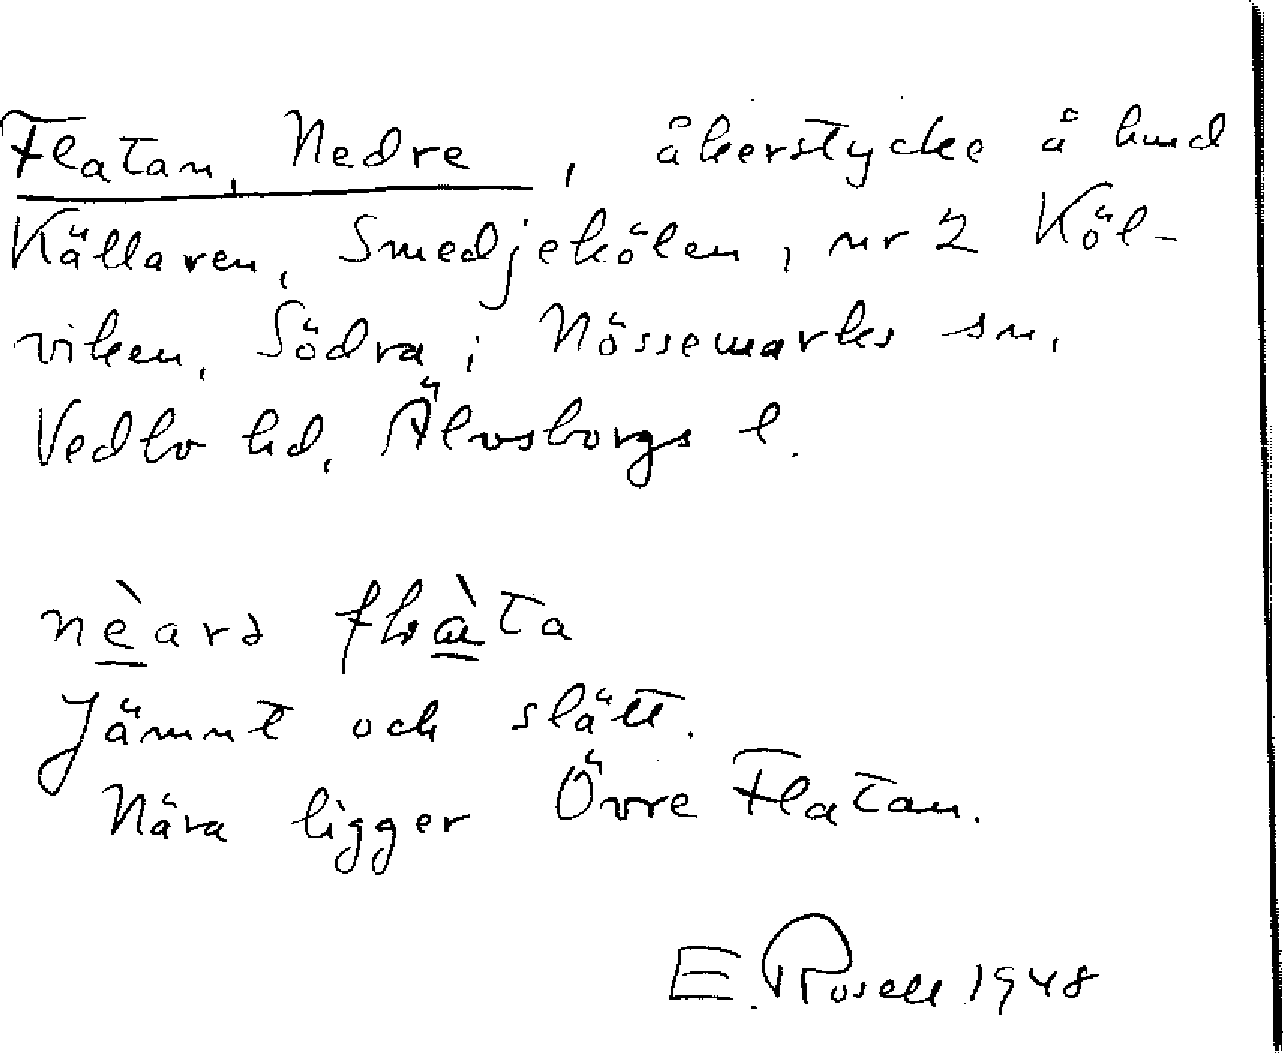 Flatan, Nedre, åkerstycke å hmd
Källaren, Smedjekölen, nr 2 Köl-
viken, Södra, i Nössemarks sn,
Vedbo hd, Älvsborgs l.
Jämnt och slätt.
Nära ligger Övre Flatan.
E. Rosell 1948